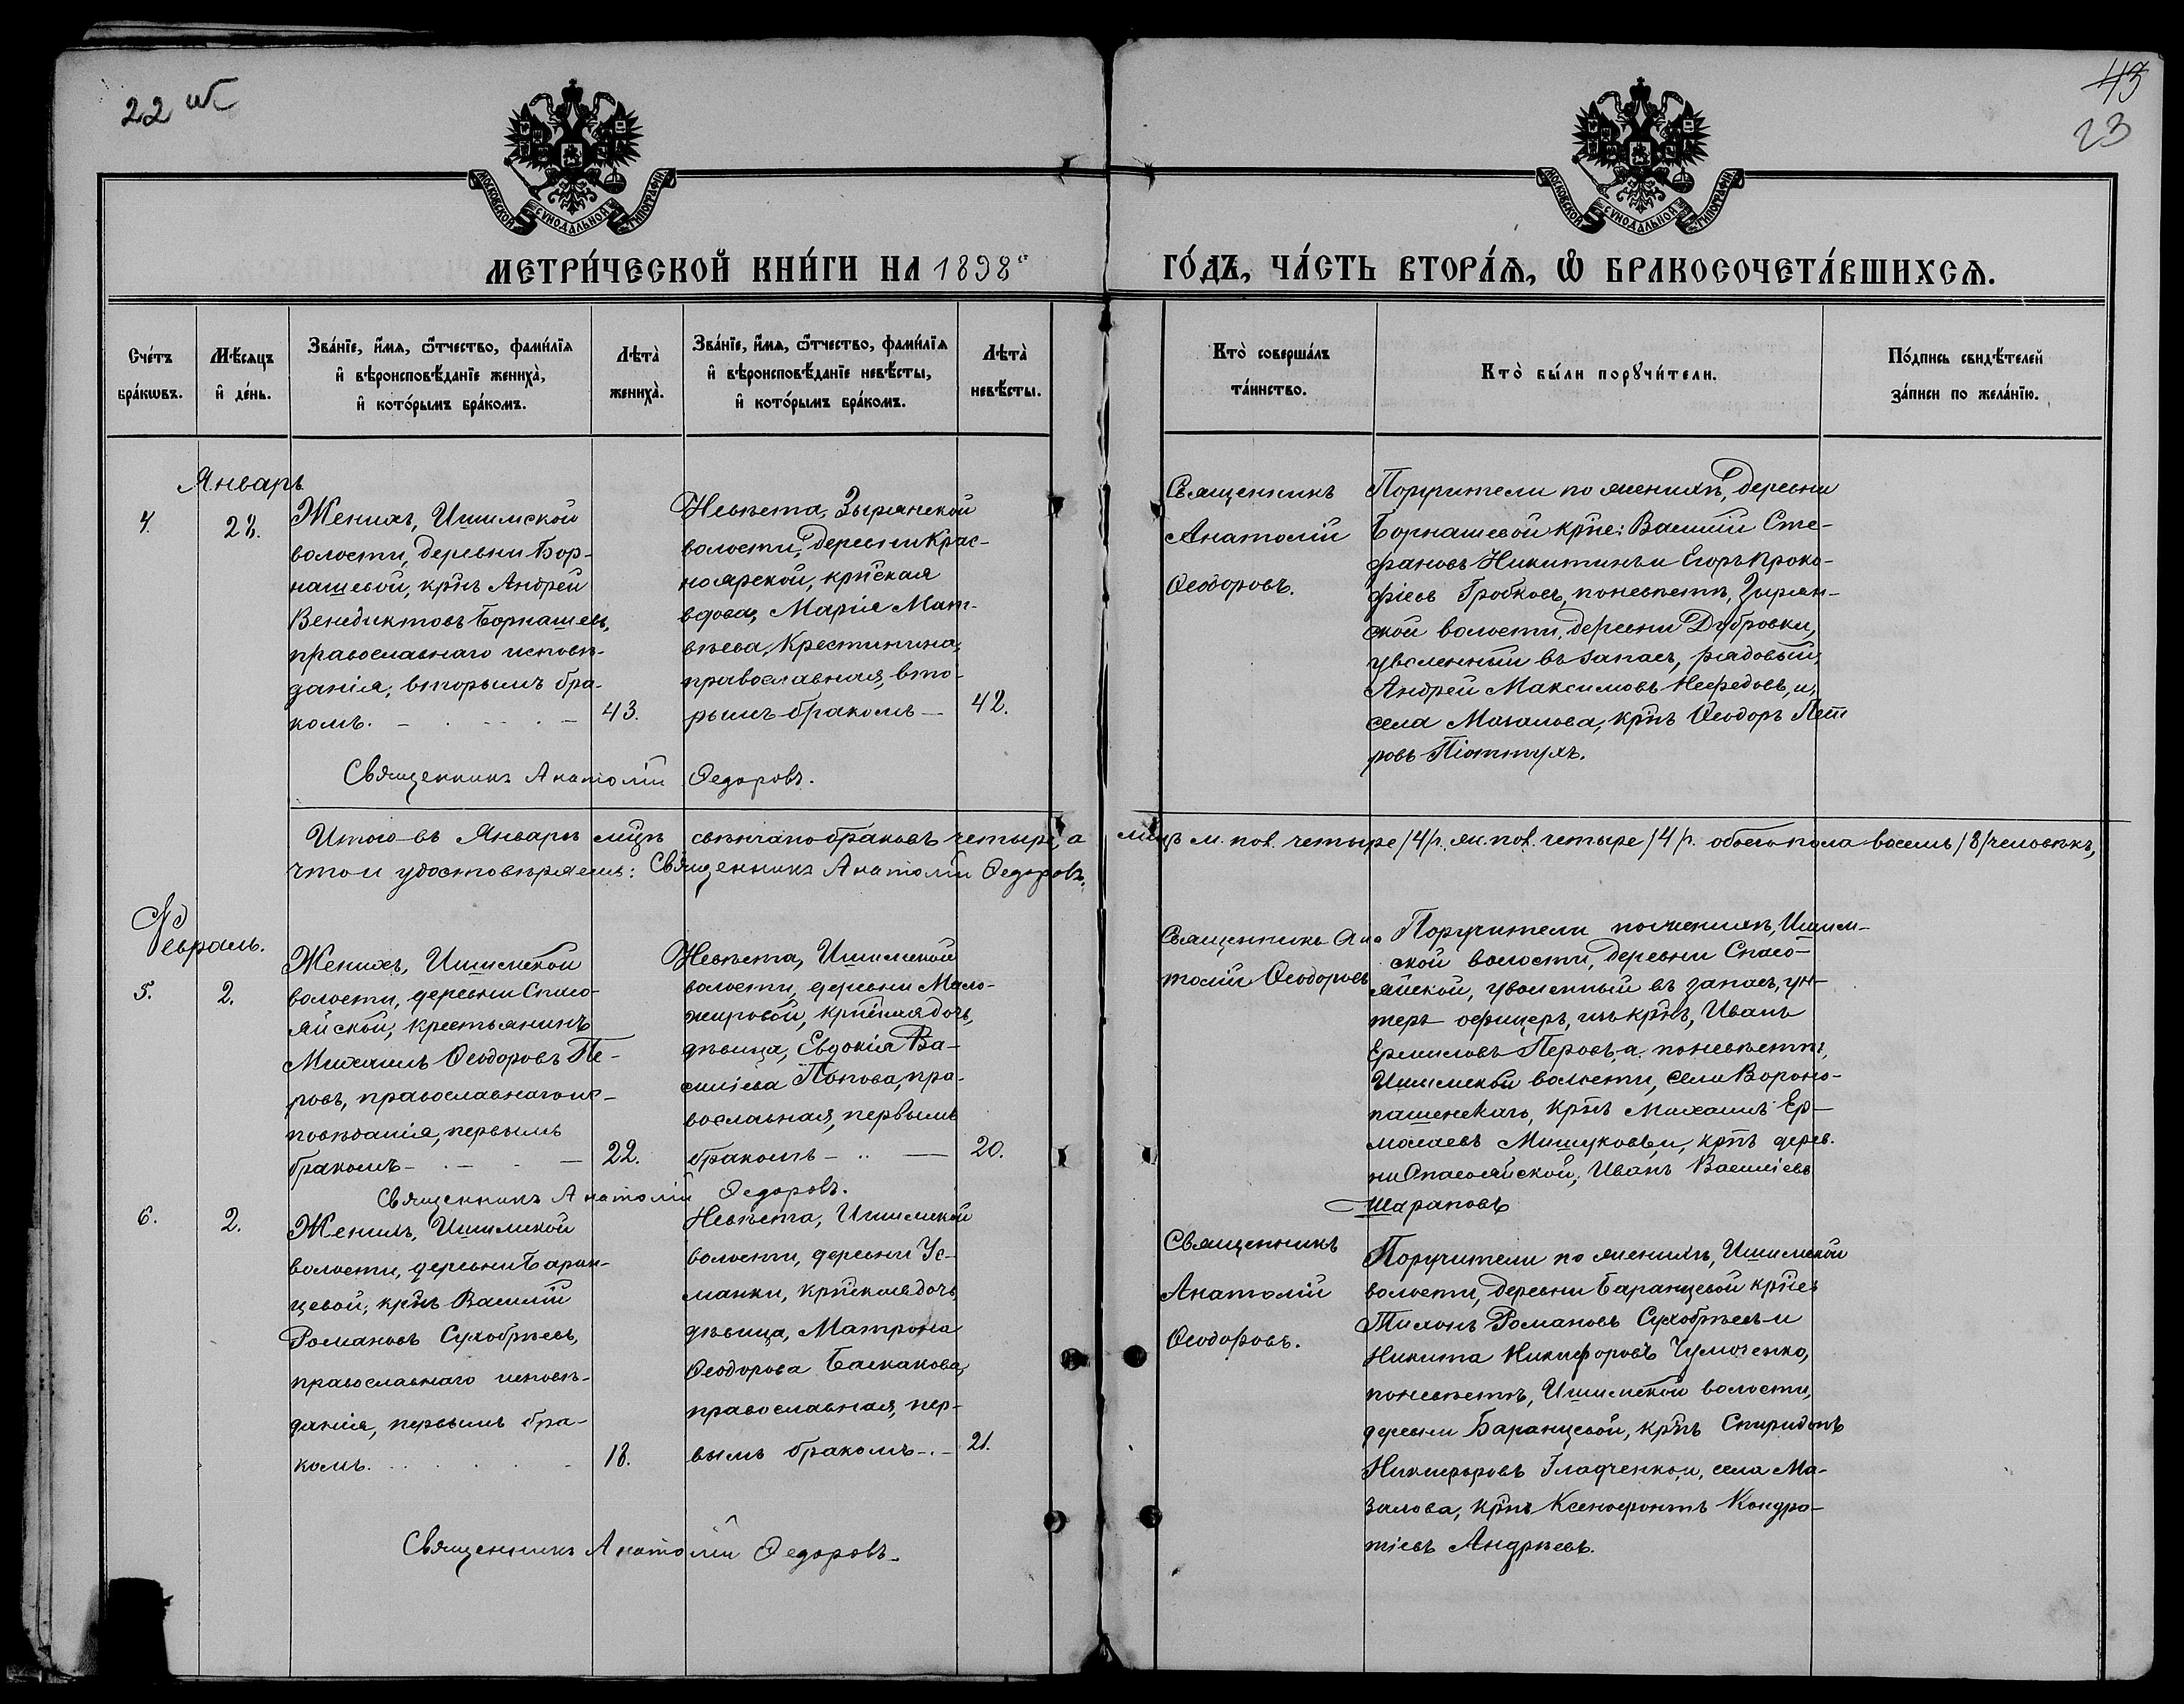 22 об
43
23
МОСКОВСКОЙ СѴНОДАЛЬНОЙ ТИПОГРАФІИ
МОСКОВСКОЙ СѴНОДАЛЬНОЙ ТИПОГРАФІИ
МЕТРИ́ЧЕСКОЙ КНИ́ГИ НА 1898й
ГО́ДЪ, ЧА́СТЬ ВТОРА́Ѧ, Ѽ БРАКОСОЧЕТА́ВШИХСѦ.
Сче́тъ
бра́кѡвъ.
Мѣ́сяцъ
и҆ де́нь.
Зва́нїе, и҆́мѧ, ѻ҆́тчество, фами́лїѧ
и҆ вѣроисповѣ́данїе жениха̀,
и҆ кото́рымъ бра́комъ.
Лѣта̀
жениха̀.
Зва́нїе, и҆́мѧ, ѻ҆́тчество, фами́лїѧ
и҆ вѣроисповѣ́данїе невѣ́сты,
и҆ кото́рымъ бра́комъ.
Лѣта̀
невѣ́сты.
Кто̀ соверша́лъ
та́инство.
Кто̀ бы́ли порꙋчи́тели.
По́дпись свидѣ́телей
за́писи по жела́нїю.
Январь
4.
28.
Женихъ, Ишимской
волости, деревни Бор-
нашевой, крн̃ъ Андрей
Венедиктовъ Борнашевъ,
православнаго исповѣ-
данія, вторымъ бра-
комъ. -
43.
Невѣста, Зырянской
волости, деревни Крас-
ноярской, крп̃ская
вдова, Марія Мат-
вѣева, Крестинина,
православная, вто-
рымъ бракомъ —
42.
Священникъ
Анатолій
Ѳеодоровъ.
Поручители по женихѣ, деревни
Борнашевой крн̃е: Василій Сте-
фановъ Никитинъ и Егоръ Проко-
фіевъ Гробковъ, по невѣстѣ, Зырян-
ской волости, деревни Дубровки,
уволенный въ запасъ, рядовый,
Андрей Максимовъ Нефедовъ, и,
села Мазалова, крн̃ъ Ѳеодоръ Пет
ровъ Піоттухъ.
Священникъ Анатолій Ѳедоровъ.
Итого въ Январѣ мц̃ѣ свѣнчано браковъ четыре, а лицъ м. пол. четыре /4/. жен. пол. четыре /4/. обоего пола восемь /8/ человѣкъ,
что и удостовѣряемъ: Священникъ Анатолій Ѳедоровъ.
Февраль.
5.
2.
Женихъ, Ишимской
волости, деревни Спасо-
яйской, крестьянинъ
Михаилъ Ѳеодоровъ Пе-
ровъ, православнаго ис-
повѣданія, первымъ
бракомъ -
22.
Невѣста, Ишимской
волости, деревни Мало-
жировой, крп̃ская дочь,
дѣвица, Евдокія Ва-
силіева Попова, пра-
вославная, первымъ
бракомъ -
20.
Священникъ Ана
толій Ѳеодоровъ
Поручители по женихѣ, Ишим-
ской волости, деревни Спасо-
яйской, уволенный въ запасъ, ун-
теръ офицеръ, изъ крн̃ъ, Иванъ
Ермиловъ Перовъ, а по невѣстѣ,
Ишимской волости, села Вороно-
пашенскаго, крн̃ъ Михаилъ Ер-
молаевъ Мишуковъ, и, крн̃ъ дерев.
ни Спасояйской, Иванъ Василіевъ
Шараповъ
Священникъ Анатолій Ѳедоровъ.
6.
2.
Женихъ, Ишимской
волости, деревни Баран-
цевой, крн̃ъ Василій
Романовъ Сухобрѣевъ,
православнаго исповѣ-
данія, первымъ бра-
комъ.
18.
Невѣста, Ишимской
волости, деревни Ус-
манки, крп̃ская дочь,
дѣвица, Матрона
Ѳеодорова Баскакова,
православная, пер-
вымъ бракомъ -.-
21.
Священникъ
Анатолій
Ѳеодоровъ.
Поручители по женихѣ, Ишимской
волости, деревни Баранцевой крн̃е:
Тихонъ Романовъ Сухобрѣевъ и
Никита Никифоровъ Чумаченко,
по невѣстѣ, Ишимской волости,
деревни Баранцевой, крн̃ъ Спиридонъ
Никифоровъ Гладченко, и, села Ма-
залова, крн̃ъ Ксенофонтъ Кондра-
тіевъ Андрѣевъ.
Священникъ Анатолій Ѳедоровъ.